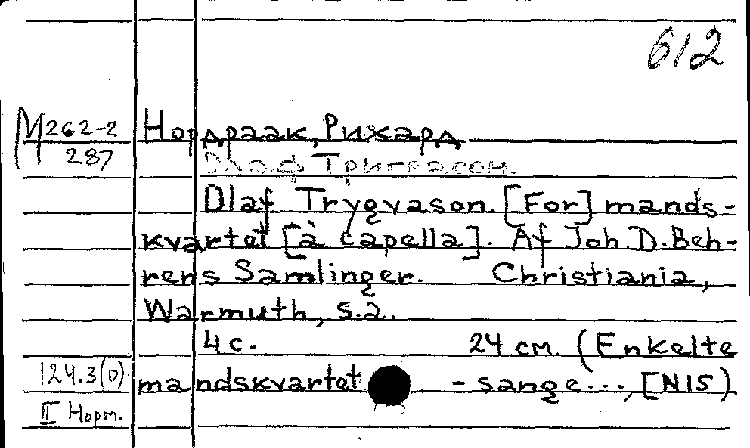 612
M262-2 Нордраак, Рихард
287
Олаф Тригвасон.
Olaf Trygvason. [For] mands-
kvartet [à capella]. Af Joh D. Beh-
rens Samlinger. Christiania,
Warmuth, s.a.
4 c. 24 cm. (Enkelte
124.3(0) mandskvartet - sange..., [N15)
II Норт.